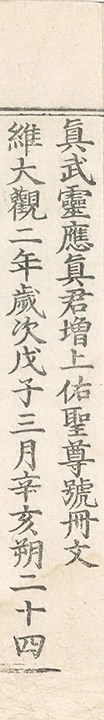 真武靈應真君增上佑聖尊號冊文
維大觀二年歲次戊子三月辛亥朔二十四